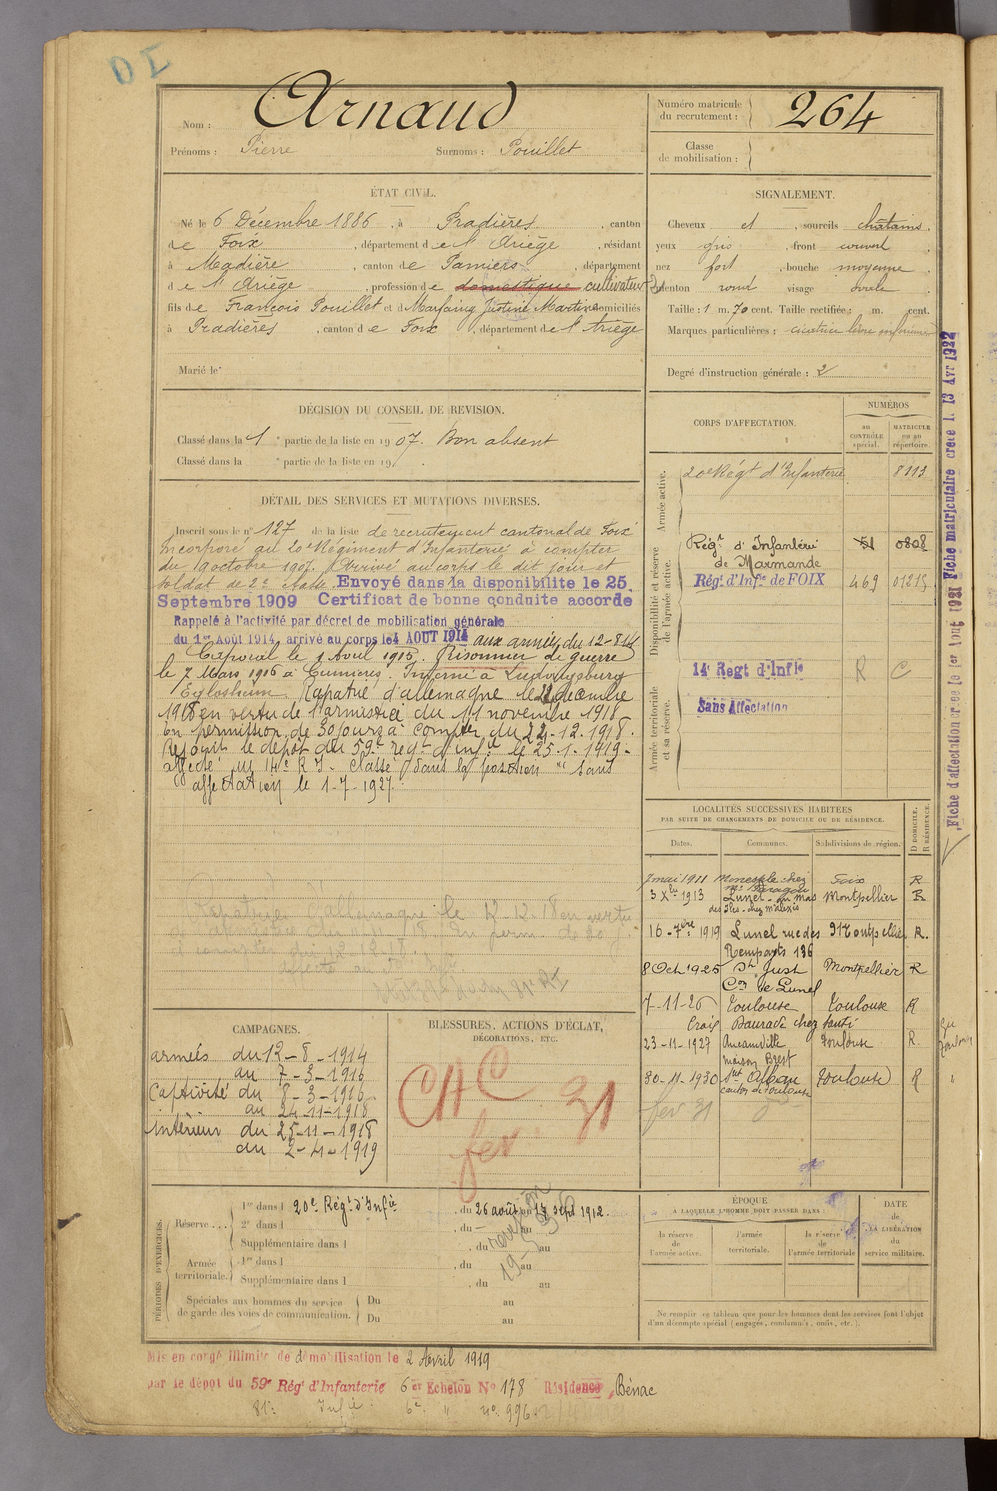 Nom : Arnaud
Prénoms : Pierre Surnoms : Pouillet
Numéro matricule du recrutement : 264
Classe de mobilisation :
ÉTAT CIVIL.
Né le 6 Décembre 1886, à Pradières, canton
de Foix, département de l'Ariège, résidant
à Madière, canton de Pamiers, département
de l'Ariège, profession de domestique cultivateur
fils de François Pouillet et de Marfaing Justine Martine domiciliés
à Pradières, canton de Foix, département de l'Ariège
Marié le
SIGNALEMENT.
Cheveux et, sourcils châtains.
yeux gris, front couvert
nez fort, bouche moyenne
menton rond visage ovale
Taille : 1 m. 70 cent. Taille rectifiée : m. cent.
Marques particulières : cicatrice lèvre
Degré d'instruction générale : 2
DÉCISION DU CONSEIL DE REVISION.
Classé dans la 1 e partie de la liste en 1907. Bon absent
Classé dans la e partie de la liste en 19
CORPS D'AFFECTATION.
NUMÉROS
au CONTRÔLE spécial.
MATRICULE ou au répertoire.
Armée active.
20e Régt d'Infanterie 8113
Disponibilité et réserve de l'armée active.
Régt d'Infanterie de Marmande 51 0808
Régt d'Infie de FOIX 469 01215
Armée territoriale et sa réserve.
14e Regt d'Infie R C
Sans Affectation
Fiche d'affectation créée le 1er Août 1921 Fiche matriculaire créée l. 13 Avr 1922
DÉTAIL DES SERVICES ET MUTATIONS DIVERSES.
Inscrit sous le n° 127 de la liste de recrutement cantonal de Foix
Incorporé au 20e Régiment d'Infanterie à compter
du 10 octobre 1907. Arrivé au corps le dit jour et
soldat de 2e classe. Envoyé dans la disponibilite le 25
Septembre 1909 Certificat de bonne conduite accordé
Rappelé à l'activité par décret de mobilisation générale
du 1er Août 1914, arrivé au corps le 4 AOUT 1914 aux armées du 12-8-14
Caporal le 1 Avril 1915. Prisonnier de guerre
le 7 Mars 1916 à Cumières. Interné à Ludwigsburg
Eglosheim. Rapatrié d'allemagne le 22 décembre
1918 en vertu de l'armistice du 11 novembre 1918
En permission de 30 jours à compter du 24-12-1918.
Rejoint le dépôt du 59e régt d'infie le 25-1-1919.
affecté au 14e R I. Classé dans la position "sans
affectation le 1-7-1927.
Rapatrié d'allemagne le 12.12.18 en vertu
LOCALITÉS SUCCESSIVES HABITÉES
PAR SUITE DE CHANGEMENTS DE DOMICILE OU DE RÉSIDENCE.
Dates. Communes. Subdivisions de région. D DOMICILE. R RÉSIDENCE.
7 mai 1911 Monesple chez Mr Paragou Foix R
3 Xbre 1913 Lunel - au mas des Iles - chez Mr Alexis Montpellier R
16-7bre 1919 Lunel rue des Remparts 136 Montpellier R.
8 Oct 1925 St Just Con de Lunel Montpellier R
7-11-26 Toulouse Toulouse R
Croix Daurade chez Santi
23-11-1927 Aucamville maison Brest Toulouse R.
30-11-1930 St Alban canton de Toulouse Toulouse R
fev 31
CAMPAGNES.
armées du 12-8-1914
au 7-3-1916
Captivité du 8-3-1916
au 24-11-1918
intérieur du 25-11-1918
au 2-4-1919
BLESSURES, ACTIONS D'ÉCLAT,
DÉCORATIONS, ETC.
CHC
fev 31
PÉRIODES D'EXERCICES.
Réserve.... 1re dans l 20e Régt d'Infie, du 26 août au 17 sept 1912.
2e dans l, du au
Supplémentaire dans l, du au
Armée territoriale. 1re dans l, du au
Supplémentaire dans l, du au
Spéciales aux hommes du service de garde des voies de communication. Du au
Du au
ÉPOQUE
A LAQUELLE L'HOMME DOIT PASSER DANS :
la réserve de l'armée active.
l'armée territoriale.
la réserve de l'armée territoriale
DATE de LA LIBÉRATION du service militaire.
Ne remplir ce tableau que pour les hommes dont les services font l'objet
d'un décompte spécial (engagés, condamnés, omis, etc.).
Mis en congé illimité de démobilisation le 2 Avril 1919
par le dépôt du 59e Régt d'Infanterie 6e Echelon No 178 Résidence, Bénac
81e Infie 6e " no 996.